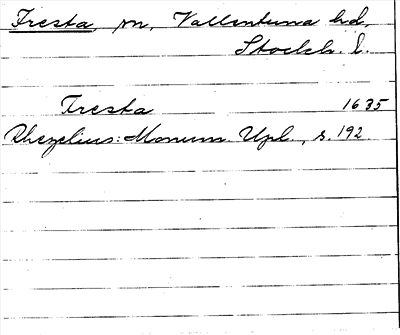 Fresta, sn, Vallentuna hd,
Stockh. l.
Fresta 1635
Rhezelius: Monum. Upl., s. 192